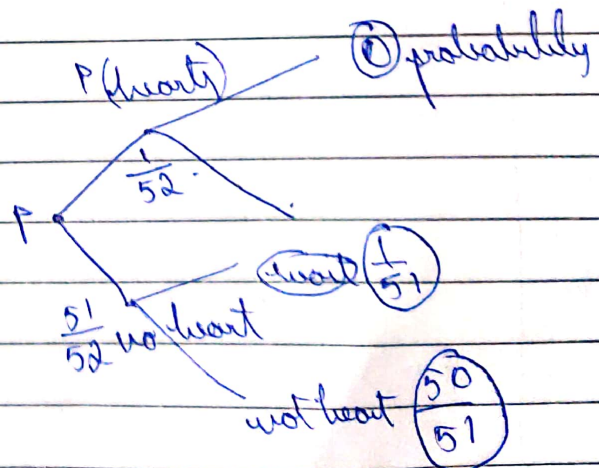 P(hearts)
0 probability
1/52
P
heart 1/51
51/52 no heart
not heart 50/51